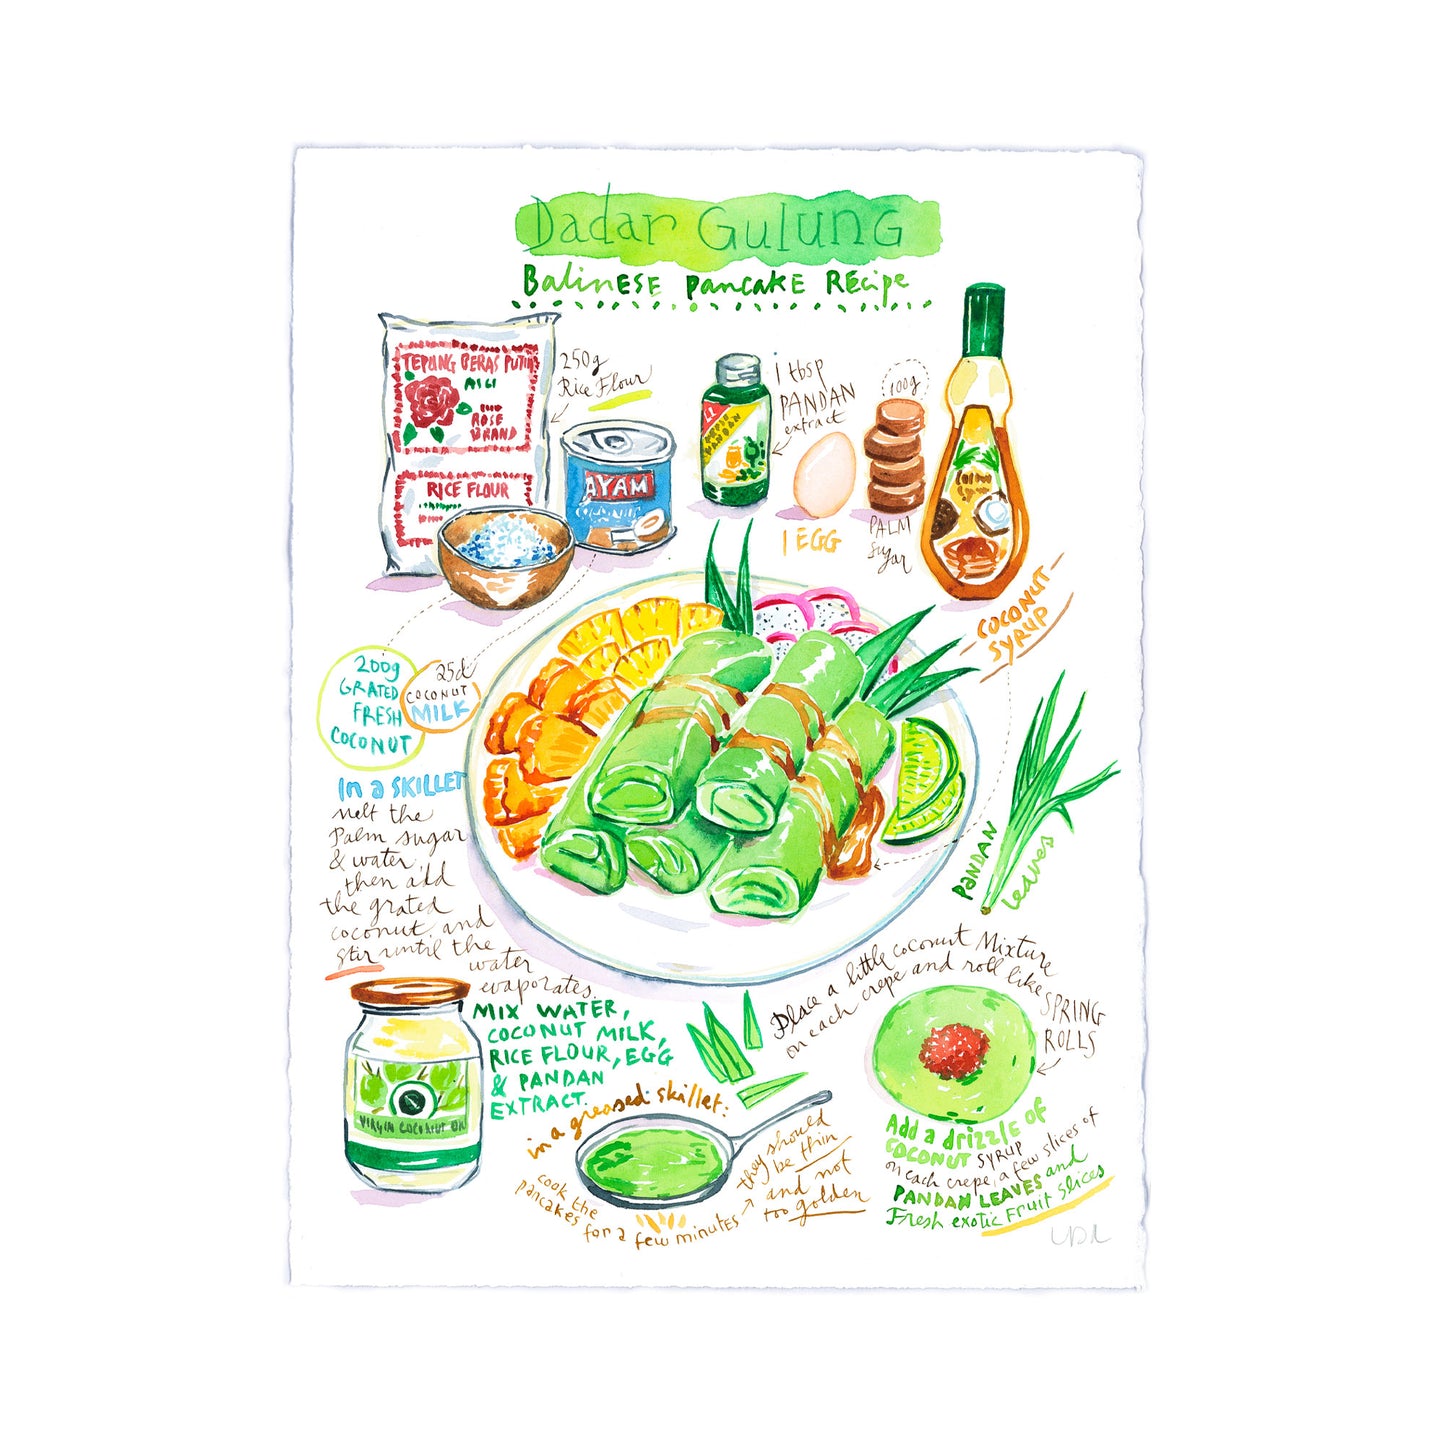 Dadar Gulung
Balinese Pancake Recipe
TEPUNG BERAS PUTIH
ROSE
BRAND
RICE FLOUR
250g
Rice Flour
AYAM
1 tbsp
PANDAN
extract
PANDAN
1 EGG
100g
PALM
sugar
COCONUT
SYRUP
200g
GRATED
FRESH
COCONUT
25cl
COCONUT
MILK
In a SKILLET
melt the
Palm sugar
& water,
then add
the grated
coconut, and
stir until the
water
evaporates.
PANDAN
Leaves
VIRGIN COCONUT OIL
MIX WATER,
COCONUT MILK,
RICE FLOUR, EGG
& PANDAN
EXTRACT.
in a greased skillet:
cook the
pancakes
for a few minutes
they should
be thin
and not
too golden
Place a little coconut Mixture
on each crepe and roll like
SPRING
ROLLS
Add a drizzle of
COCONUT SYRUP
on each crepe, a few slices of
PANDAN LEAVES and
Fresh exotic Fruit slices